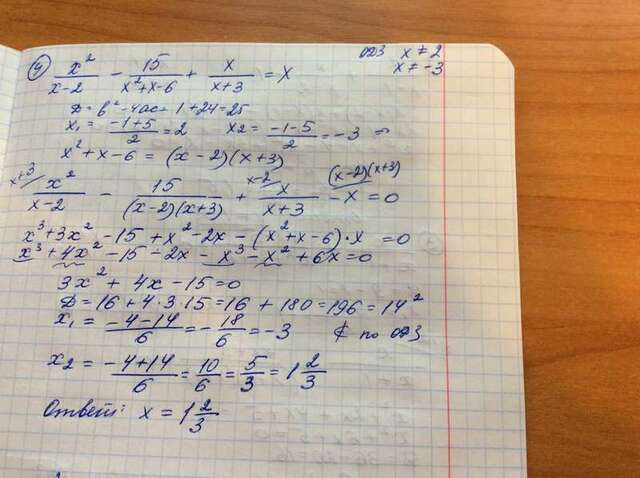 4) x²/(x-2) - 15/(x²+x-6) + x/(x+3) = x
ОДЗ x ≠ 2
x ≠ -3
D = b²-4ac = 1+24=25
x₁ = (-1+5)/2 = 2 x₂ = (-1-5)/2 = -3 ⇒
x²+x-6 = (x-2)(x+3)
x+3/ x²/(x-2) - 15/((x-2)(x+3)) + x-2/ x/(x+3) - (x-2)(x+3)/ x = 0
x³+3x²-15+x²-2x-(x²+x-6)·x = 0
x³+4x²-15-2x-x³-x²+6x=0
3x²+4x-15=0
D=16+4·3·15=16+180=196=14²
x₁ = (-4-14)/6 = -18/6 = -3 ∉ по ОДЗ
x₂ = (-4+14)/6 = 10/6 = 5/3 = 1 2/3
Ответ: x = 1 2/3